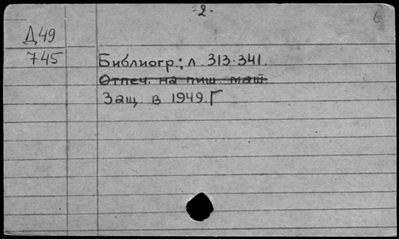 -2-
6
Д49
745
Библиогр.: л. 313-341.
Отпеч. на пиш. маш.
Защ. в 1949.Г